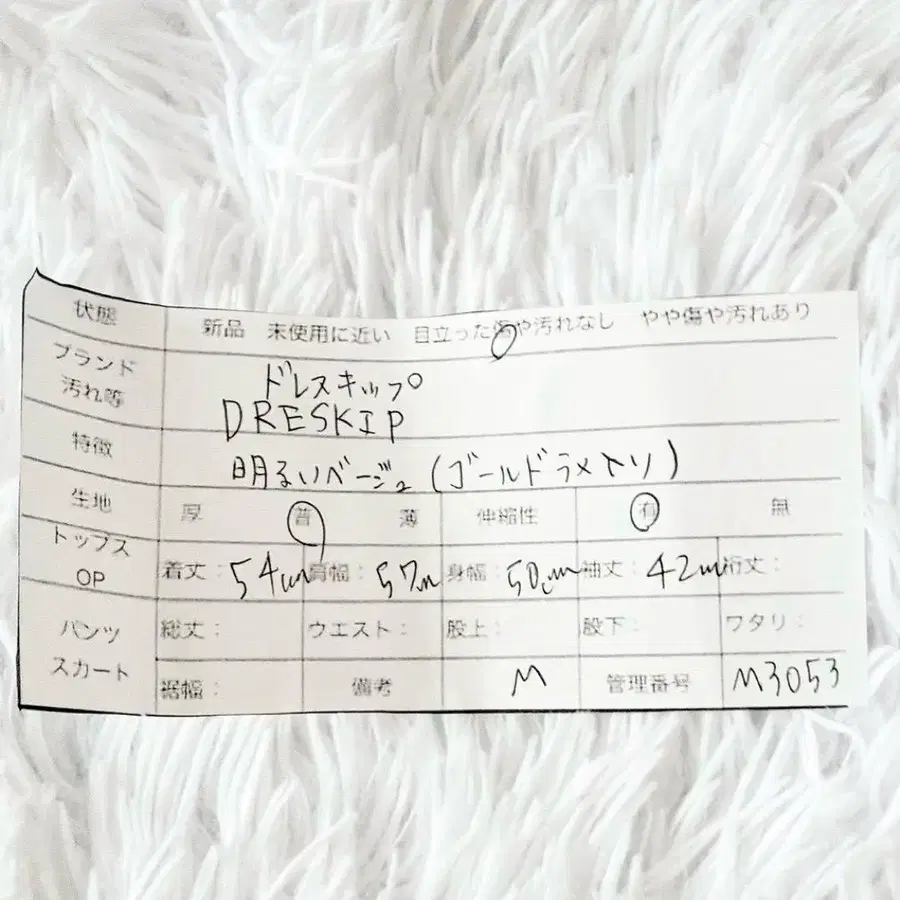 状態 新品 未使用に近い 目立った傷や汚れなし やや傷や汚れあり
ブランド
汚れ等
ドレスキップ
DRESKIP
特徴 明るいベージュ(ゴールドラメ入り)
生地 厚 普 薄 伸縮性 有 無
トップス
OP
着丈: 54cm 肩幅: 57cm 身幅: 50cm 袖丈: 42cm 裄丈:
パンツ
スカート
総丈: ウエスト: 股上: 股下: ワタリ:
裾幅: 備考 M 管理番号 M3053